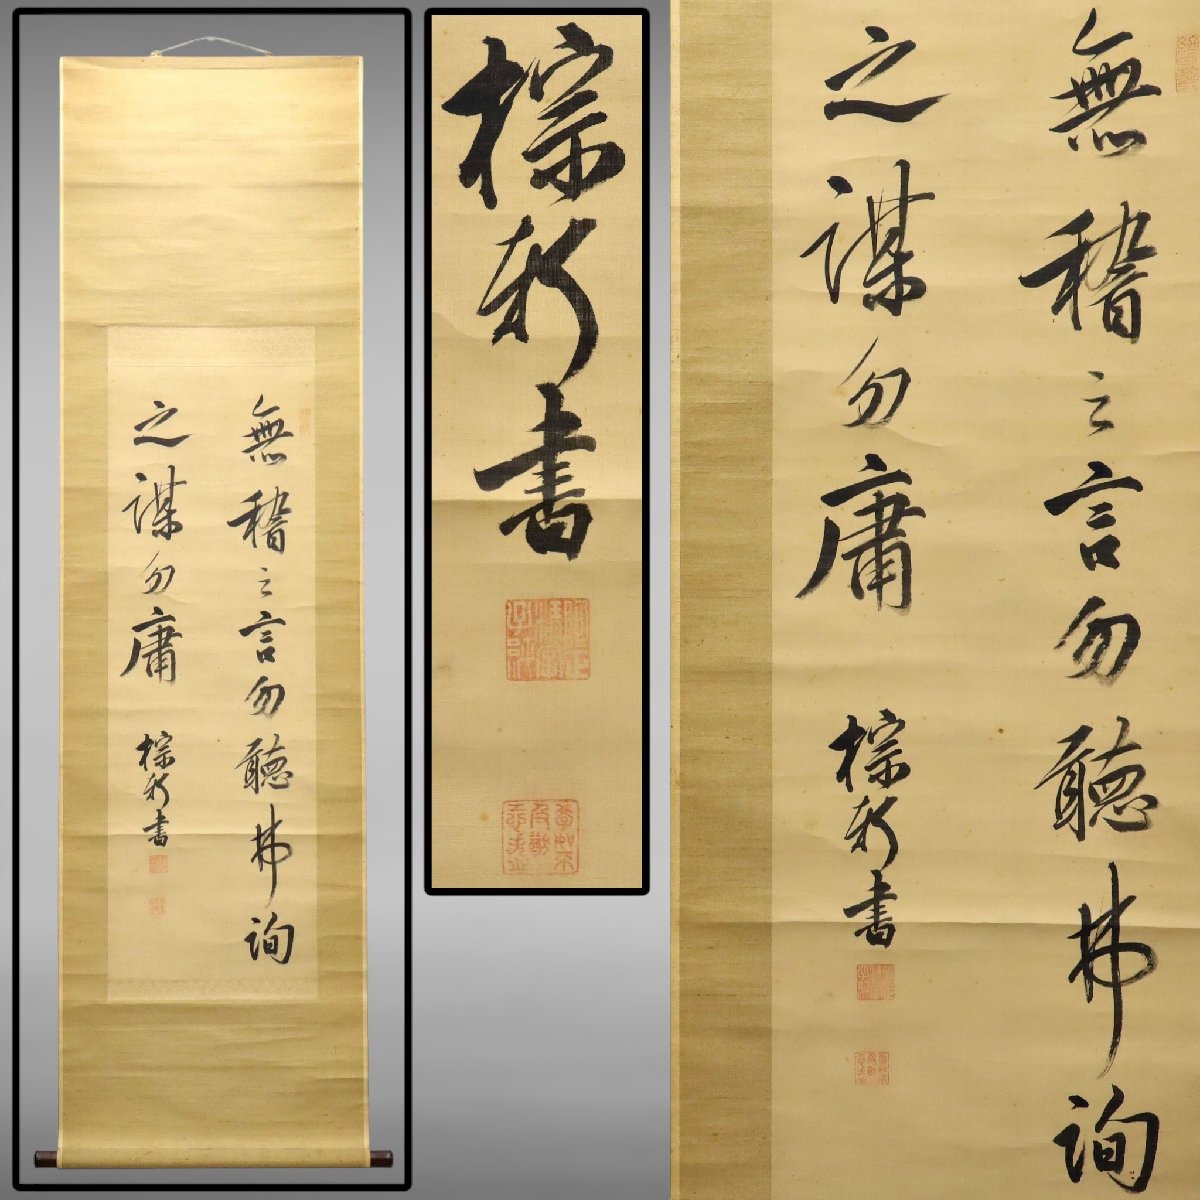 無稽之言勿聽弗詢
之謀勿庸
棕軒書
棕軒書
無稽之言勿聽弗詢
之謀勿庸
棕軒書